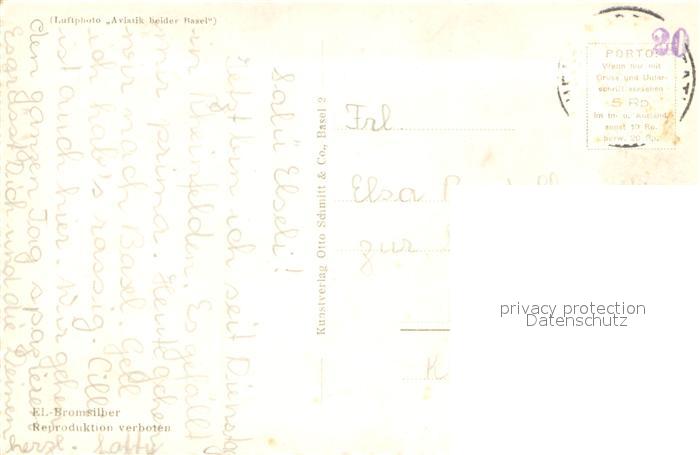 (Luftphoto „Aviatik beider Basel")
Salü Elseli!
Jetzt bin ich seit Dienstag
in Rheinfelden. Es gefällt
mir prima. Heut gehen
wir nach Basel. Gell
ich hab's rassig. Cilli
ist auch hier. Wir gehen
den ganzen Tag spazieren
Es grüsst dich und die Deinen
herzl.
El.-Bromsilber
Reproduktion verboten
Kunstverlag Otto Schmitt & Co., Basel 2
PORTO:
Wenn nur mit
Gruss und Unter-
schrift versehen
5 Rp.
Im In- u. Ausland
sonst 10 Rp.
bezw. 20 Rp.
20
Frl.
Elsa
zur
K
privacy protection
Datenschutz